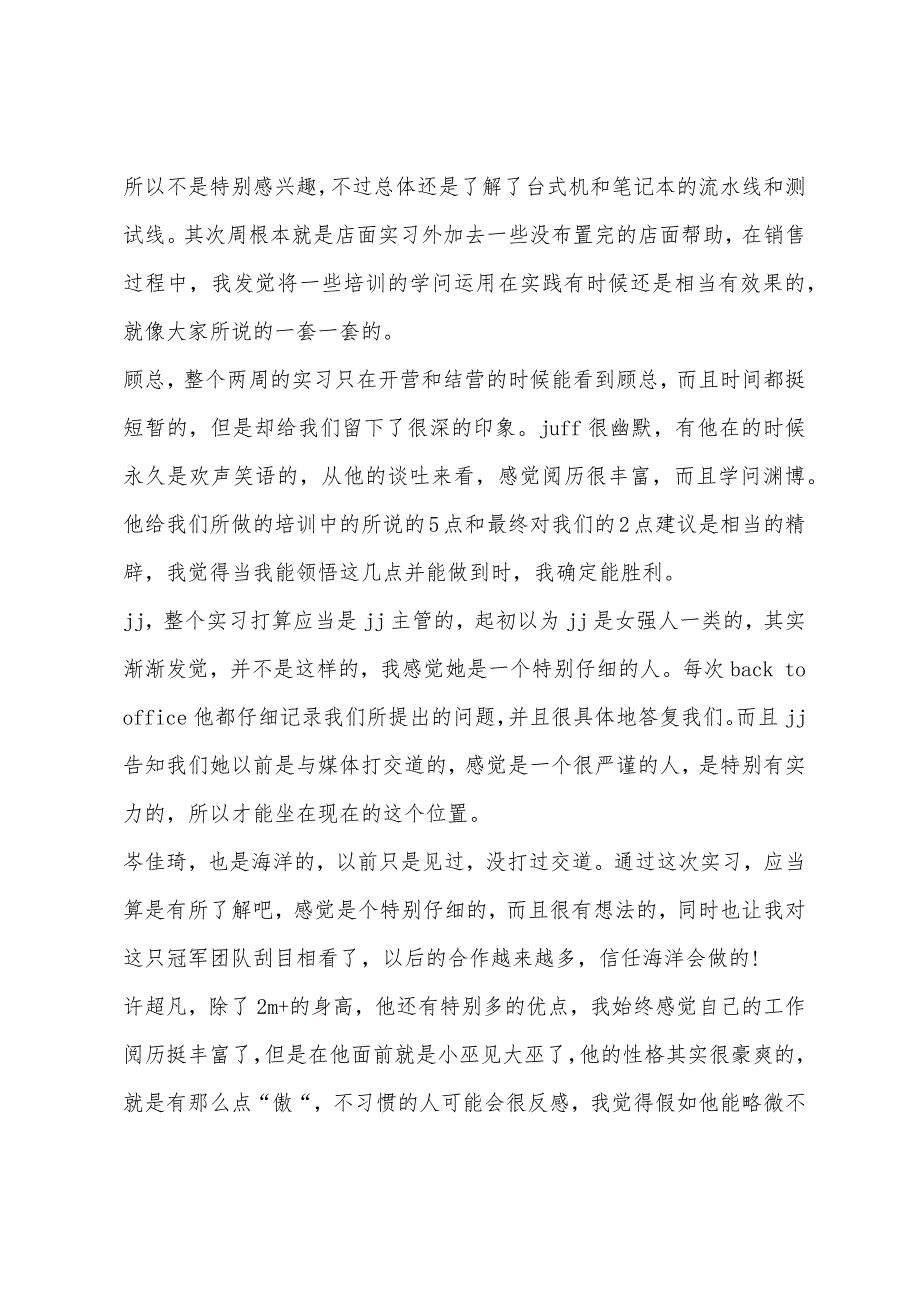 所以不是特别感兴趣，不过总体还是了解了台式机和笔记本的流水线和测
试线。其次周根本就是店面实习外加去一些没布置完的店面帮助，在销售
过程中，我发觉将一些培训的学问运用在实践有时候还是相当有效果的，
就像大家所说的一套一套的。
顾总，整个两周的实习只在开营和结营的时候能看到顾总，而且时间都挺
短暂的，但是却给我们留下了很深的印象。juff很幽默，有他在的时候
永久是欢声笑语的，从他的谈吐来看，感觉阅历很丰富，而且学问渊博。
他给我们所做的培训中的所说的5点和最终对我们的2点建议是相当的精
辟，我觉得当我能领悟这几点并能做到时，我确定能胜利。
jj，整个实习打算应当是jj主管的，起初以为jj是女强人一类的，其实
渐渐发觉，并不是这样的，我感觉她是一个特别仔细的人。每次back to
office他都仔细记录我们所提出的问题，并且很具体地答复我们。而且jj
告知我们她以前是与媒体打交道的，感觉是一个很严谨的人，是特别有实
力的，所以才能坐在现在的这个位置。
岑佳琦，也是海洋的，以前只是见过，没打过交道。通过这次实习，应当
算是有所了解吧，感觉是个特别仔细的，而且很有想法的，同时也让我对
这只冠军团队刮目相看了，以后的合作越来越多，信任海洋会做的!
许超凡，除了2m+的身高，他还有特别多的优点，我始终感觉自己的工作
阅历挺丰富了，但是在他面前就是小巫见大巫了，他的性格其实很豪爽的，
就是有那么点“傲“，不习惯的人可能会很反感，我觉得假如他能略微不